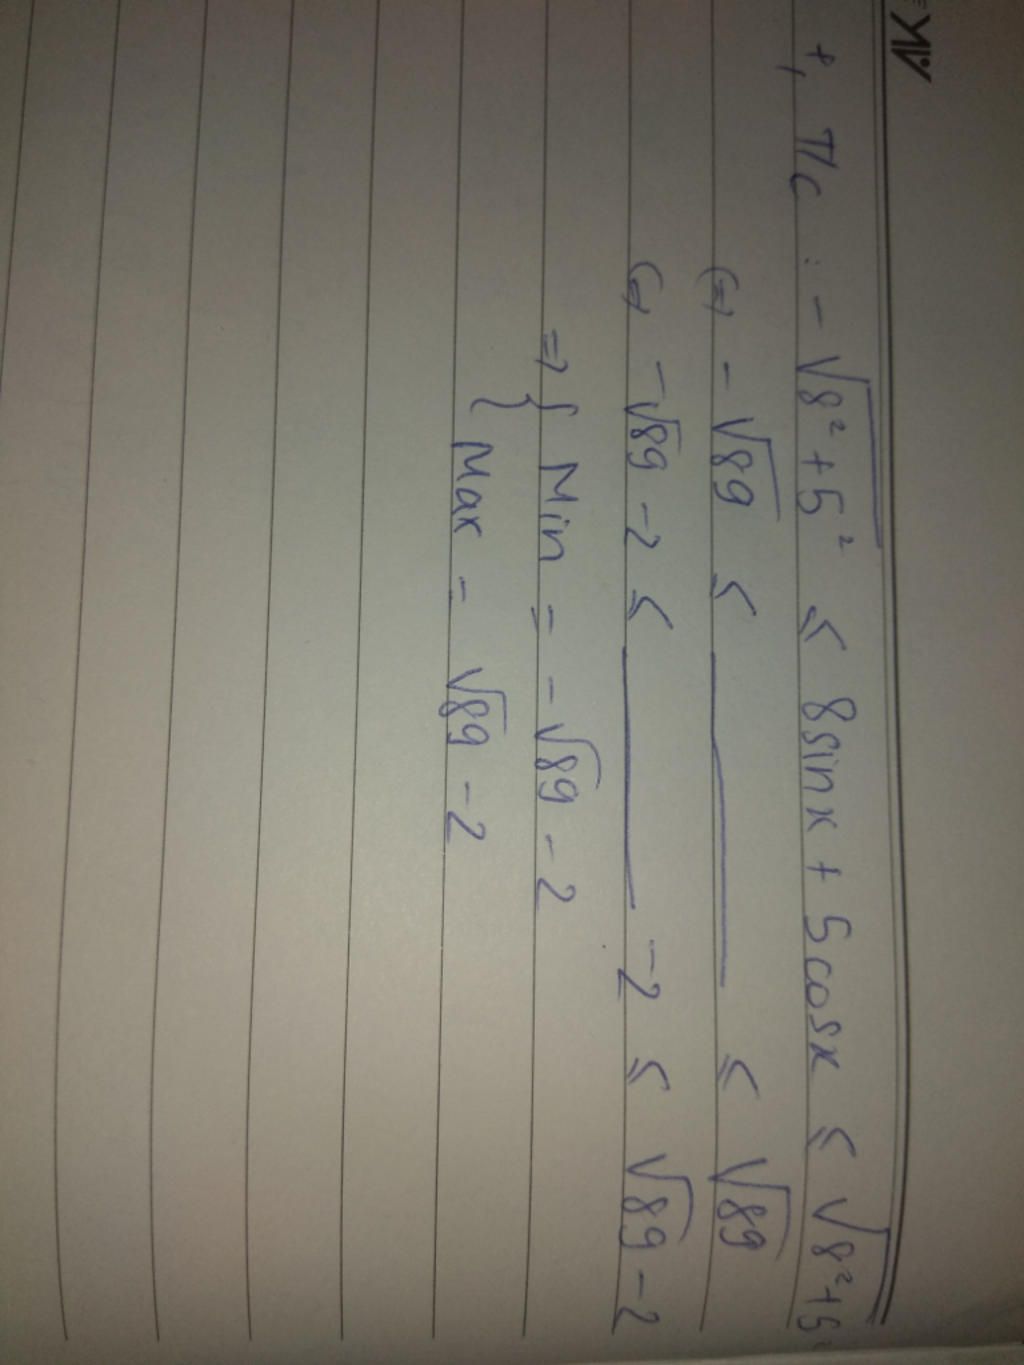 +, T/c : - √8² + 5² ≤ 8sinx + 5cosx ≤ √8² + 5
(=) - √89 ≤ ——— ≤ √89
(=) - √89 - 2 ≤ ——— - 2 ≤ √89 - 2
=> { Min = - √89 - 2
{ Max = √89 - 2